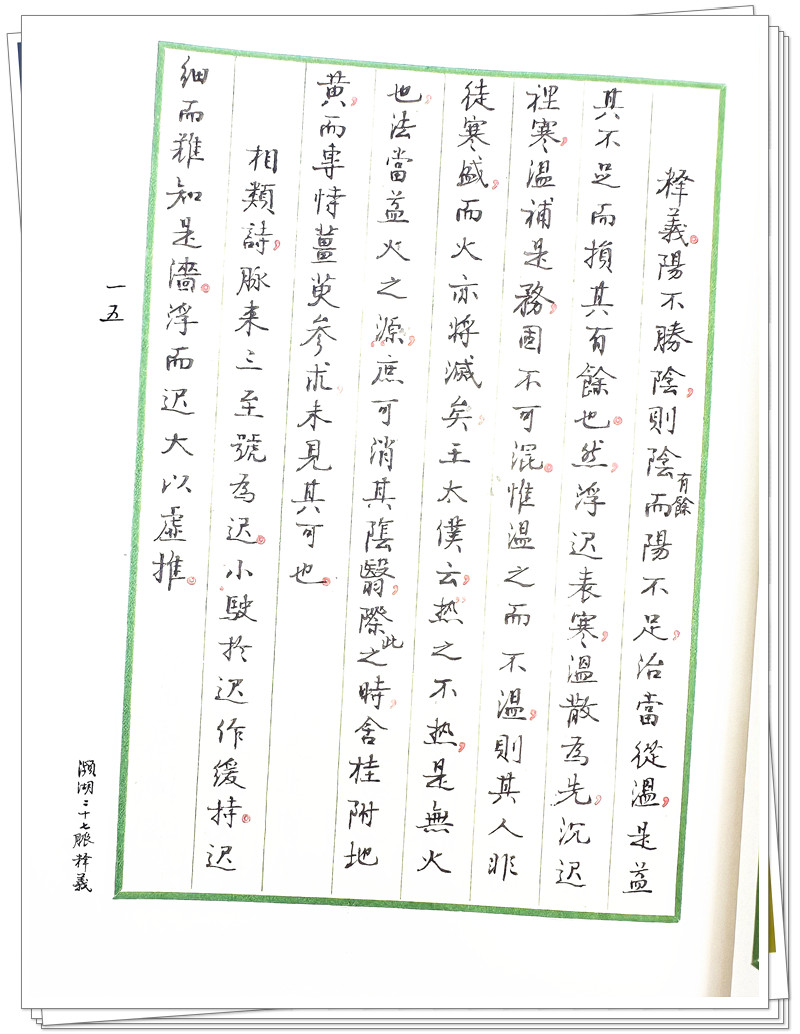 釋義。陽不勝陰，則陰有餘而陽不足，治當從溫，是益
其不足而損其有餘也。然，浮迟表寒，溫散為先，沉迟
裡寒，溫補是務，固不可混。惟溫之而不溫，則其人非
徒寒盛，而火亦將減矣，王太僕云，热之不热，是無火
也，法當益火之源，庶可消其陰翳，際此之時，舍桂附地
黃，而專恃薑萸参朮未見其可也。
相類詩，脉来三至號為迟。小駛於迟作缓持。迟
细而難知是濇。浮而迟大以虛推。
一五
濒湖二十七脈释義